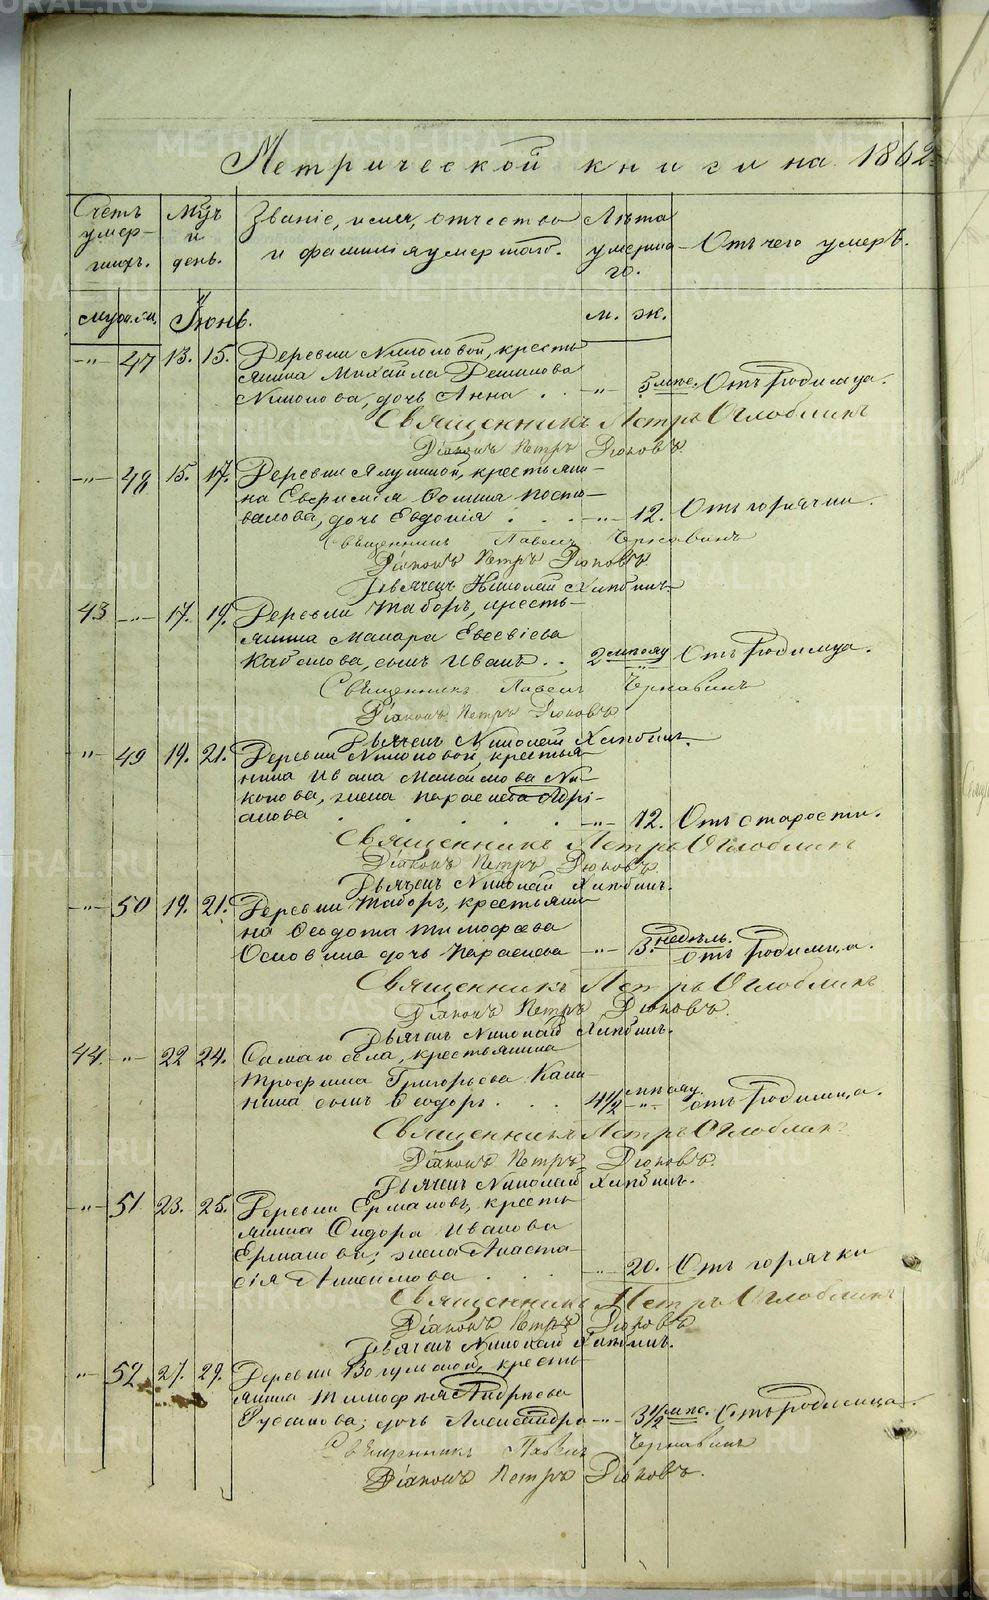 Метрической книги на 1862
Счетъ умер- шихъ.
Мѣц. и день.
Званіе, имя, отчество и фамилія умершаго.
Лѣта умерша- го.
Отъ чего умеръ.
Іюнь.
м. ж.
-"- 47 13. 15. Деревни Никоновой, кресть-
янина Михаила
Никонова, дочь Анна . . -"- 5 мѣс. Отъ Родимца.
Священникъ Петръ Оглоблинъ
Діаконъ Петръ Дюковъ.
-"- 48 15. 17. Деревни крестьяни-
на Евфимія
дочь Евдокія . . . -"- 12. Отъ горячки.
Священникъ Павелъ Чернавинъ
Діаконъ Петръ Дюковъ
Дьячекъ Николай
43 -"- 17. 19. Деревни Таборъ, кресть-
янина Макара Евсевіева
сынъ Иванъ . . 2 мѣс. Отъ Родимца.
Священникъ Павелъ Чернавинъ
Діаконъ Петръ Дюковъ
Дьячекъ Николай
-"- 49 19. 21. Деревни Никоновой, крестья-
нина Ивана Максимова Ни-
конова, жена Параскева Адрі-
анова . . . . . -"- 72. Отъ старости.
Священникъ Петръ Оглоблинъ
Діаконъ Петръ Дюковъ.
Дьячекъ Николай
-"- 50 19. 21. Деревни Таборъ, крестьяни-
на Ѳедота Тимофеева
дочь Параскева -"- 3. недѣль. отъ Родимца.
Священникъ Петръ Оглоблинъ
Діаконъ Петръ Дюковъ.
Дьячекъ Николай
44. -"- 22 24. Самаго села, крестьянина
Трофима Григорьева
сынъ Ѳеодоръ . . . 4 1/2 -"- отъ Родимца.
Священникъ Петръ Оглоблинъ
Діаконъ Петръ Дюковъ.
Дьячекъ Николай
-"- 51 23. 25. Деревни Ермаковъ, кресть-
янина Сидора Иванова
Ермакова, жена Анаста-
сія . . . -"- 20. Отъ горячки
Священникъ Петръ Оглоблинъ
Діаконъ Петръ Дюковъ
Дьячекъ Николай
-"- 52. 27. 29. Деревни кресть-
янина Тимофея Андреева
Русакова, дочь Александра -"- 3 1/2 мѣс. Отъ Родимца.
Священникъ Павелъ Чернавинъ
Діаконъ Петръ Дюковъ.
METRIKI.GASO-URAL.RU